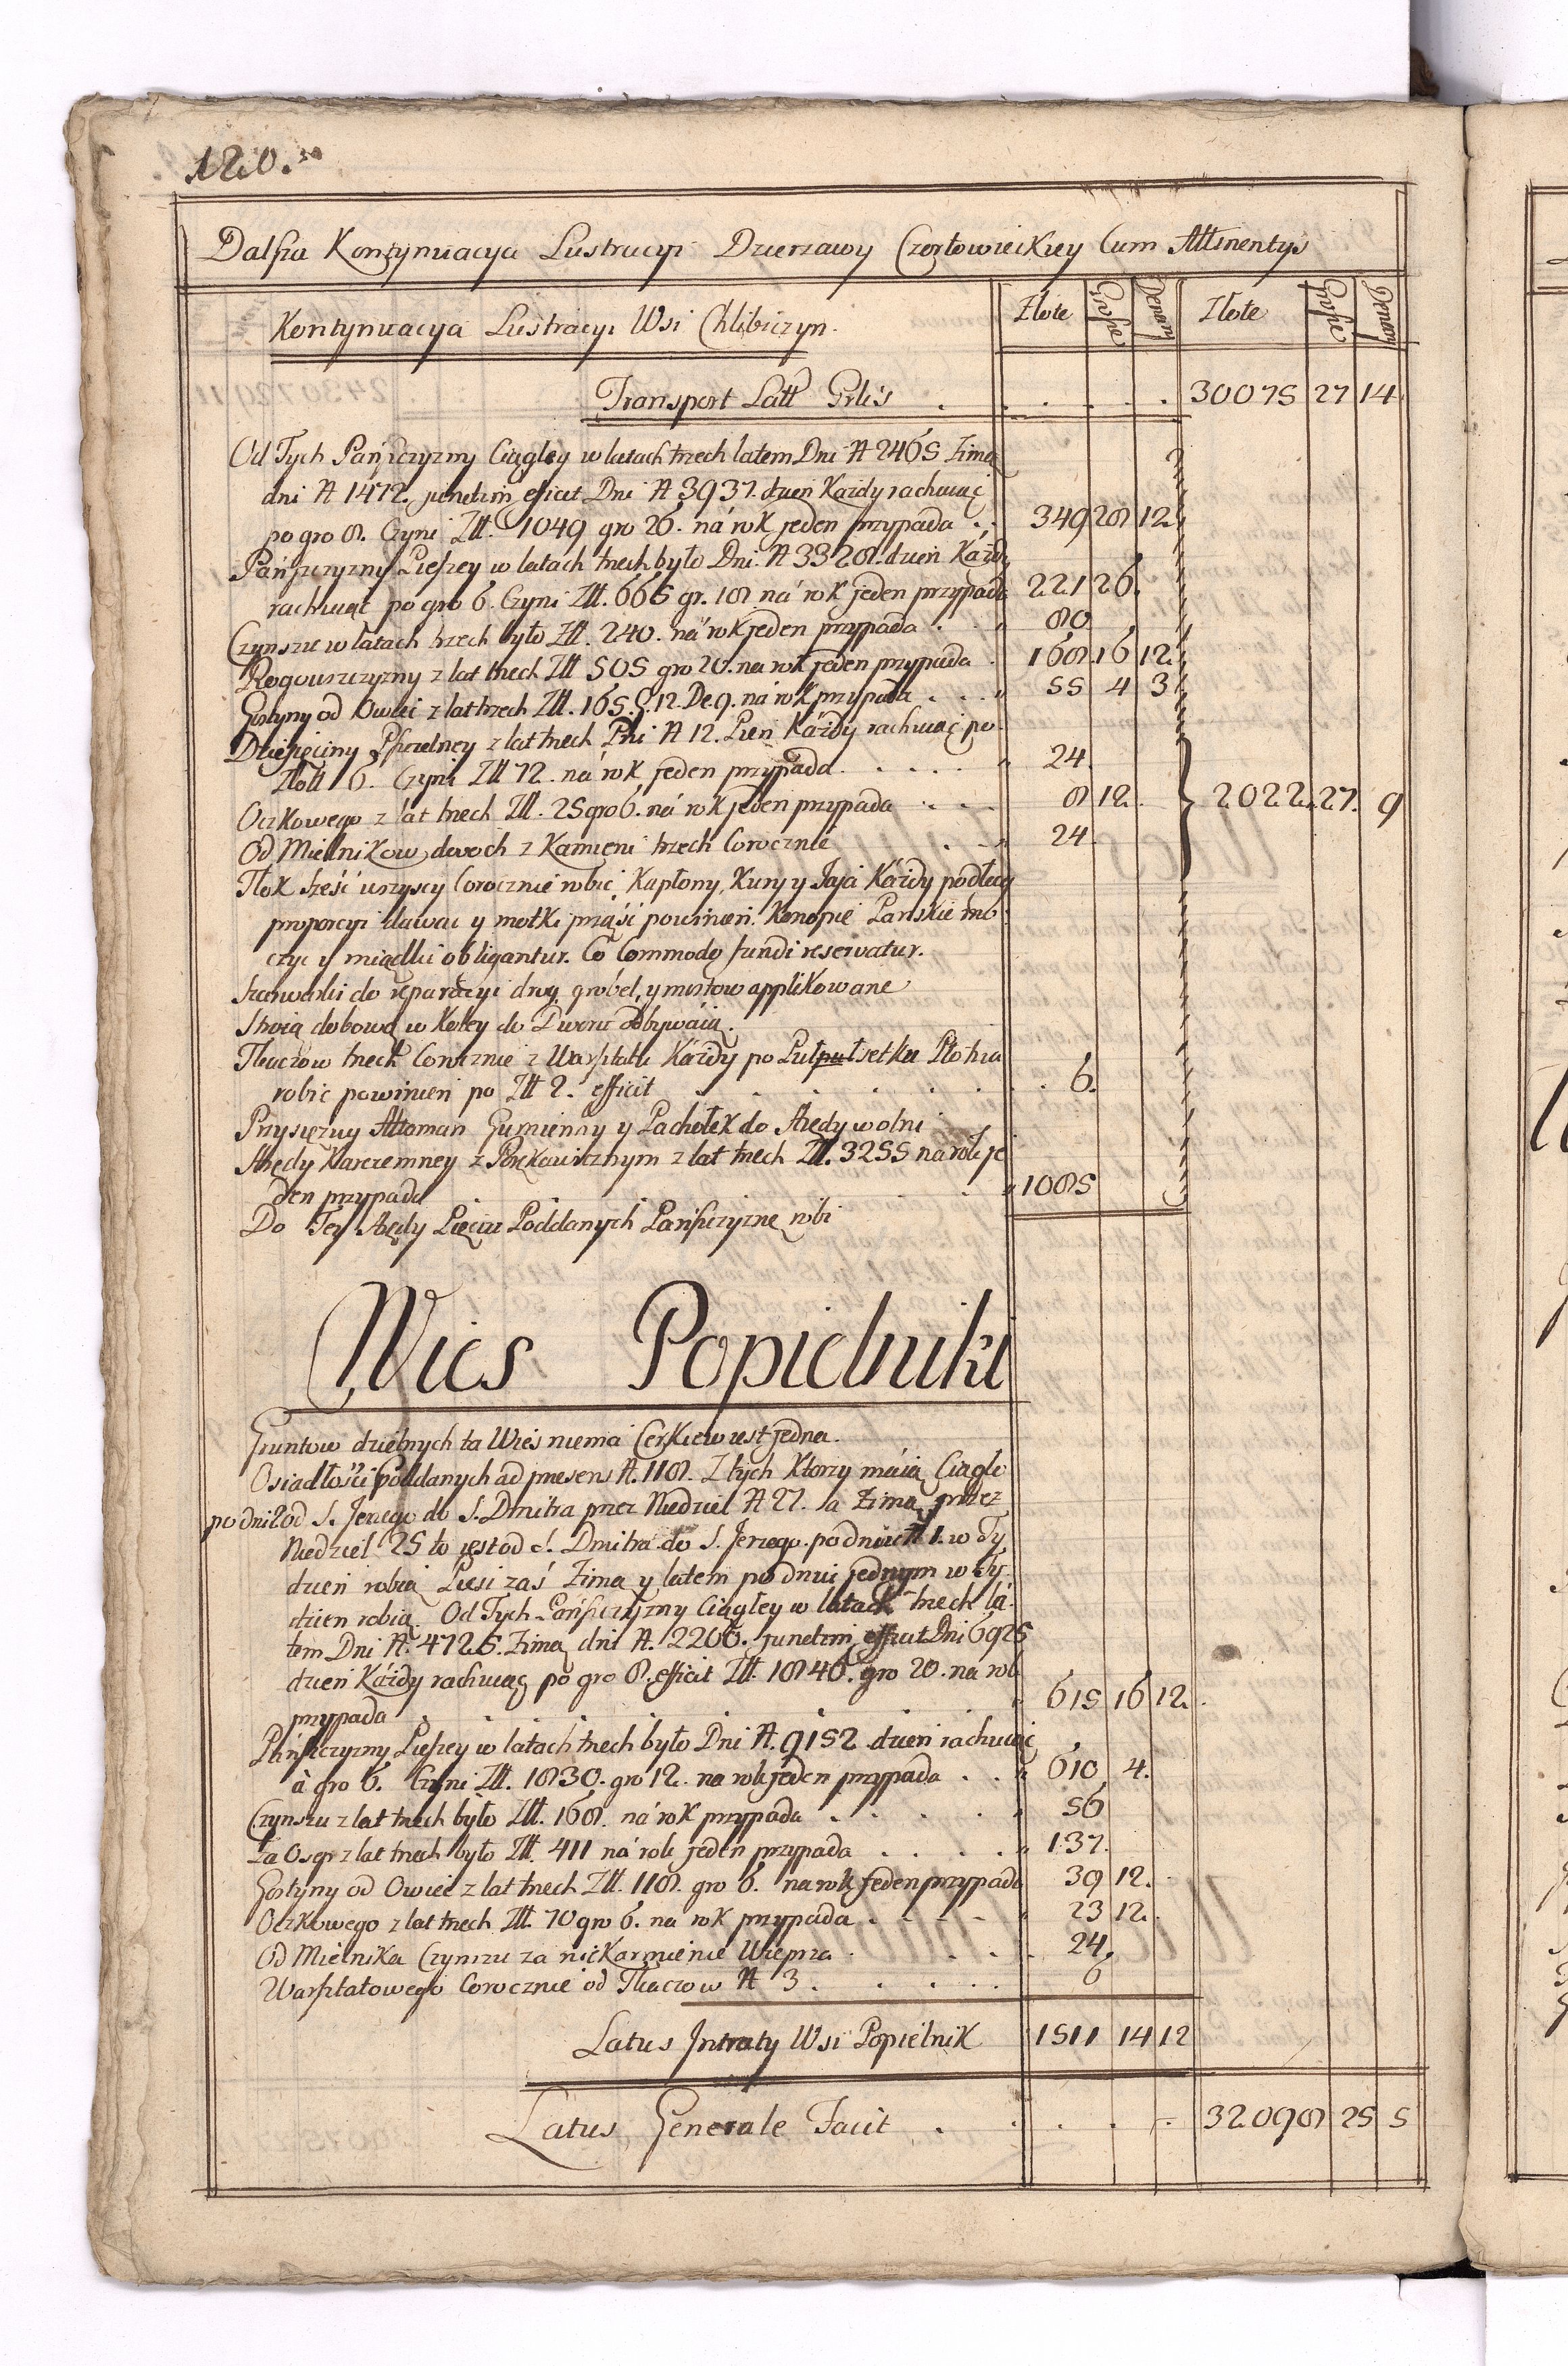 120.
Dalsza Kontynuacya Lustracyi Dzierzawy Czortowieckiey Cum Attinentys
Kontynuacya Lustracyi Wsi Chlibiczyn. Złote Grosze Denary Złote Grosze Denary
Transport Latt Grlis . . . . . 30075 27 14
Od Tych Pańszczyzny Ciągłey w latach trzech latem Dni N 2465 Zimą
dni N 1472. junctim efficit Dni N 3937. dzień Każdy rachuiąc
po gro 8. Czyni Złł. 1049 gro 26. ná rok jeden przypada . . 349 28 12
Pańszczyzny Pieszey w latach trzech było Dni. N 3328. dzień Każdy
rachuiąc po gro 6. Czyni Złł. 665 gr. 18 ná rok jeden przypada 221 26.
Czynszu w latach trzech było Złł. 240. ná rok jeden przypada . . 80
Rogouszczyzny z lat trzech Złł 505 gro 20. na rok jeden przypada . 168 16 12
Gostyny od Owiec z lat trzech Złł. 165. G. 12. De. 9. ná rok przypada . . . 55 4 3
Dziesięciny Pszczelney z lat trzech Pni N 12. Pień Każdy rachuiąc po
Złott 6. Czyni Złł 72. ná rok jeden przypada . . . . . 24.
Oczkowego z lat trzech Złł. 25 gro 6. ná rok jeden przypada . . . 8 12. 2022. 27. 9
Od Mielnikow dwoch z Kamieni trzech Corocznie . . 24.
Tłok sześć wszyscy Corocznie robić, Kapłony, Kury y Jaja Każdy podług
proporcyi dawać y motki prząść powinien. Konopie Pańskie mo
czyć y miądlić obligantur. Co Commodo fundi reservatur.
Szarwarki do reparacyi dróg, grobel, y mostow applikowane
Stróżą dobową w Koley do Dworu odbywáią.
Tkaczow trzech Corocznie z Warsztatu Każdy po Puł setka Płotna
robić powinien po Złł 2. efficit . . . . . . 6.
Przysięzny Attaman Gumienny y Pachołek do Arędy wolni
Arędy Karczemney z Porękawicznym z lat trzech Złł. 3255 na rok je
den przypada . . . . 1085
Do Tey Arędy Pięciu Poddanych Pańszczyznę robi
Wies Popielniki
Gruntow dzielnych ta Wieś niema Cerkiew iest jedna.
Osiadłości Poddanych ad praesens N. 118. Z tych Ktorzy máią Ciągłe
po dni 2 od S. Jerzego do S. Dmitra przez Niedziel N 27. a Zimą przez
Niedziel 25 to iest od S. Dmitra do S. Jerzego. po dniu N 1. w Ty
dzień robią Piesi zaś Zimą y latem po dniu jednym w Ty
dzien robią. Od Tych Pańszczyzny Ciągłey w latach trzech lá
tem Dni N. 4725. Zimą dni N. 2200. junctim efficit Dni 6925
dzień Każdy rachuiąc po gro 8. efficit Złł. 1846. gro 20. na rok
przypada . . . . . . 615 16 12.
Pańszczyzny Pieszey w latach trzech było Dni N. 9152 dzień rachuiąc
à gro 6. Czyni Złł. 1830. gro 12. na rok jeden przypada . . 610 4.
Czynszu z lat trzech było Złł. 168. ná rok przypada . . . . . 56
Za Osep z lat trzech było Złł. 411 ná rok jeden przypada . . . . 137.
Gostyny od Owiec z lat trzech Złł. 118. gro 6. na rok jeden przypada 39 12.
Oczkowego z lat trzech Złł. 70 gro 6. na rok przypada . . . . 23 12.
Od Mielnika Czynszu za nie Karmienie Wieprza . . . . 24.
Warsztatowego Corocznie od Tkaczow N 3. . . . . . 6
Latus Intraty Wsi Popielnik 1511 14 12
Latus Generale Facit . . . . . 32098 25 5